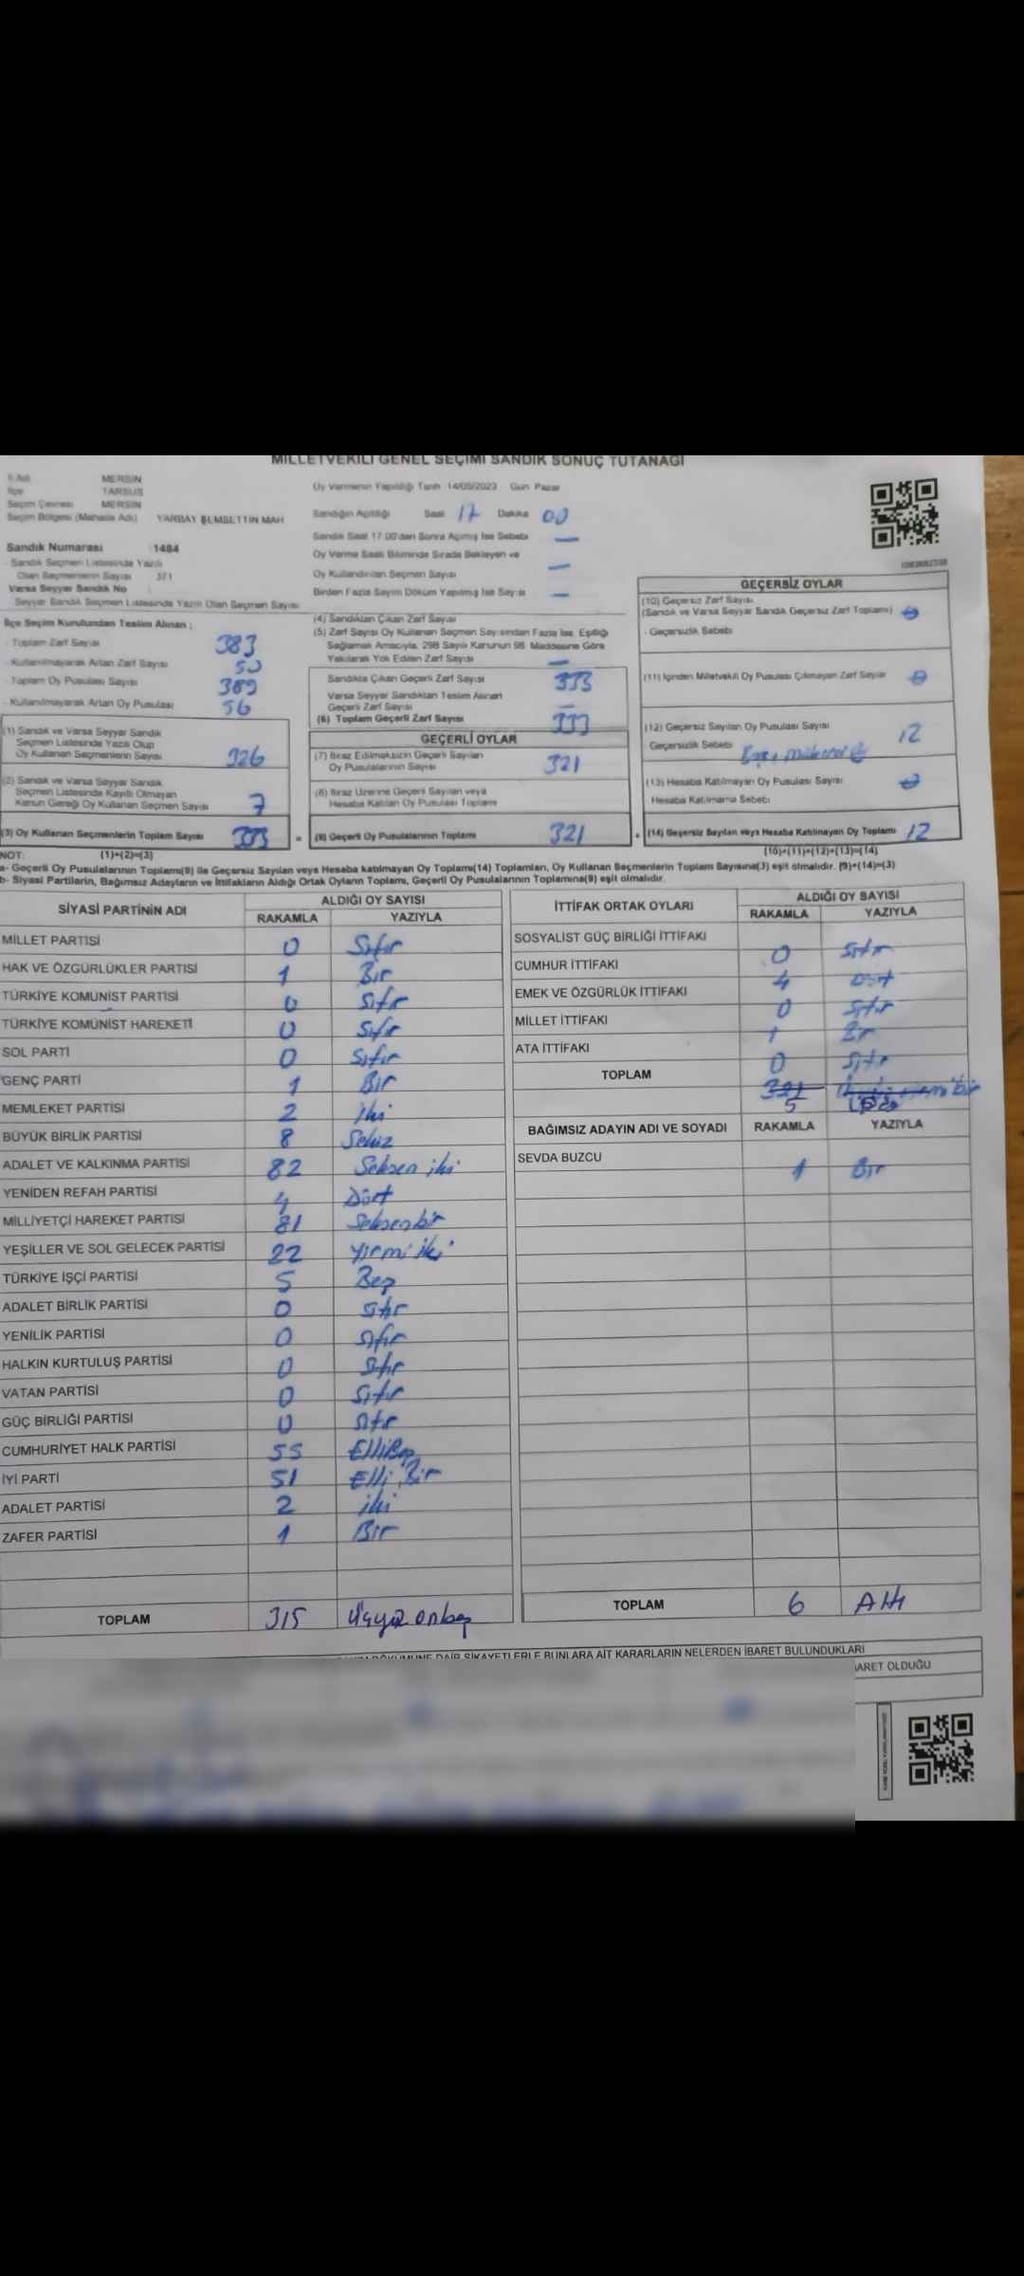 MİLLETVEKİLİ GENEL SEÇİMİ SANDIK SONUÇ TUTANAĞI
İl Adı MERSİN
İlçe TARSUS
Seçim Çevresi MERSİN
Seçim Bölgesi (Mahalle Adı) YARBAY ŞEMSETTİN MAH
Sandık Numarası 1484
Sandık Seçmen Listesinde Yazılı
Olan Seçmenlerin Sayısı 371
Varsa Seyyar Sandık No
Seyyar Sandık Seçmen Listesinde Yazılı Olan Seçmen Sayısı
Oy Vermenin Yapıldığı Tarih 14/05/2023 Gün Pazar
Sandığın Açıldığı Saat 17 Dakika 00
Sandık Saat 17.00'dan Sonra Açılmış İse Sebebi —
Oy Verme Saati Bitiminde Sırada Bekleyen ve
Oy Kullandırılan Seçmen Sayısı —
Birden Fazla Sayım Döküm Yapılmış İse Sayısı —
İlçe Seçim Kurulundan Teslim Alınan ;
- Toplam Zarf Sayısı 383
- Kullanılmayarak Artan Zarf Sayısı 50
- Toplam Oy Pusulası Sayısı 389
- Kullanılmayarak Artan Oy Pusulası 56
(1) Sandık ve Varsa Seyyar Sandık
Seçmen Listesinde Yazılı Olup
Oy Kullanan Seçmenlerin Sayısı 326
(2) Sandık ve Varsa Seyyar Sandık
Seçmen Listesinde Kayıtlı Olmayan
Kanun Gereği Oy Kullanan Seçmen Sayısı 7
(3) Oy Kullanan Seçmenlerin Toplam Sayısı 333
(4) Sandıktan Çıkan Zarf Sayısı
(5) Zarf Sayısı Oy Kullanan Seçmen Sayısından Fazla İse, Eşitliği
Sağlamak Amacıyla, 298 Sayılı Kanunun 98. Maddesine Göre
Yakılarak Yok Edilen Zarf Sayısı —
Sandıkta Çıkan Geçerli Zarf Sayısı 333
Varsa Seyyar Sandıktan Teslim Alınan
Geçerli Zarf Sayısı —
(6) Toplam Geçerli Zarf Sayısı 333
GEÇERLİ OYLAR
(7) İtiraz Edilmeksizin Geçerli Sayılan
Oy Pusulalarının Sayısı 321
(8) İtiraz Üzerine Geçerli Sayılan veya
Hesaba Katılan Oy Pusulası Toplamı
(9) Geçerli Oy Pusulalarının Toplamı 321
GEÇERSİZ OYLAR
(10) Geçersiz Zarf Sayısı
(Sandık ve Varsa Seyyar Sandık Geçersiz Zarf Toplamı) 0
- Geçersizlik Sebebi
(11) İçinden Milletvekili Oy Pusulası Çıkmayan Zarf Sayısı 0
(12) Geçersiz Sayılan Oy Pusulası Sayısı 12
Geçersizlik Sebebi
(13) Hesaba Katılmayan Oy Pusulası Sayısı 0
Hesaba Katılmama Sebebi
(14) Geçersiz Sayılan veya Hesaba Katılmayan Oy Toplamı 12
NOT: (1)+(2)=(3) (10)+(11)+(12)+(13)=(14)
a- Geçerli Oy Pusulalarının Toplamı(9) ile Geçersiz Sayılan veya Hesaba katılmayan Oy Toplamı(14) Toplamları, Oy Kullanan Seçmenlerin Toplam Sayısına(3) eşit olmalıdır. (9)+(14)=(3)
b- Siyasi Partilerin, Bağımsız Adayların ve İttifakların Aldığı Ortak Oyların Toplamı, Geçerli Oy Pusulalarının Toplamına(9) eşit olmalıdır.
SİYASİ PARTİNİN ADI ALDIĞI OY SAYISI
RAKAMLA YAZIYLA
MİLLET PARTİSİ 0 Sıfır
HAK VE ÖZGÜRLÜKLER PARTİSİ 1 Bir
TÜRKİYE KOMÜNİST PARTİSİ 0 Sıfır
TÜRKİYE KOMÜNİST HAREKETİ 0 Sıfır
SOL PARTİ 0 Sıfır
GENÇ PARTİ 1 Bir
MEMLEKET PARTİSİ 2 iki
BÜYÜK BİRLİK PARTİSİ 8 Sekiz
ADALET VE KALKINMA PARTİSİ 82 Seksen iki
YENİDEN REFAH PARTİSİ 4 Dört
MİLLİYETÇİ HAREKET PARTİSİ 81 Seksenbir
YEŞİLLER VE SOL GELECEK PARTİSİ 22 Yirmi iki
TÜRKİYE İŞÇİ PARTİSİ 5 Beş
ADALET BİRLİK PARTİSİ 0 Sıfır
YENİLİK PARTİSİ 0 Sıfır
HALKIN KURTULUŞ PARTİSİ 0 Sıfır
VATAN PARTİSİ 0 Sıfır
GÜÇ BİRLİĞİ PARTİSİ 0 Sıfır
CUMHURİYET HALK PARTİSİ 55 Elli Beş
İYİ PARTİ 51 Elli Bir
ADALET PARTİSİ 2 iki
ZAFER PARTİSİ 1 Bir
TOPLAM 315 Üçyüz onbeş
İTTİFAK ORTAK OYLARI ALDIĞI OY SAYISI
RAKAMLA YAZIYLA
SOSYALİST GÜÇ BİRLİĞİ İTTİFAKI 0 Sıfır
CUMHUR İTTİFAKI 4 Dört
EMEK VE ÖZGÜRLÜK İTTİFAKI 0 Sıfır
MİLLET İTTİFAKI 1 Bir
ATA İTTİFAKI 0 Sıfır
TOPLAM 321
5
BAĞIMSIZ ADAYIN ADI VE SOYADI RAKAMLA YAZIYLA
SEVDA BUZCU 1 Bir
TOPLAM 6 Altı
DÖKÜMÜNE DAİR ŞİKAYETLERLE BUNLARA AİT KARARLARIN NELERDEN İBARET BULUNDUKLARI
BARET OLDUĞU